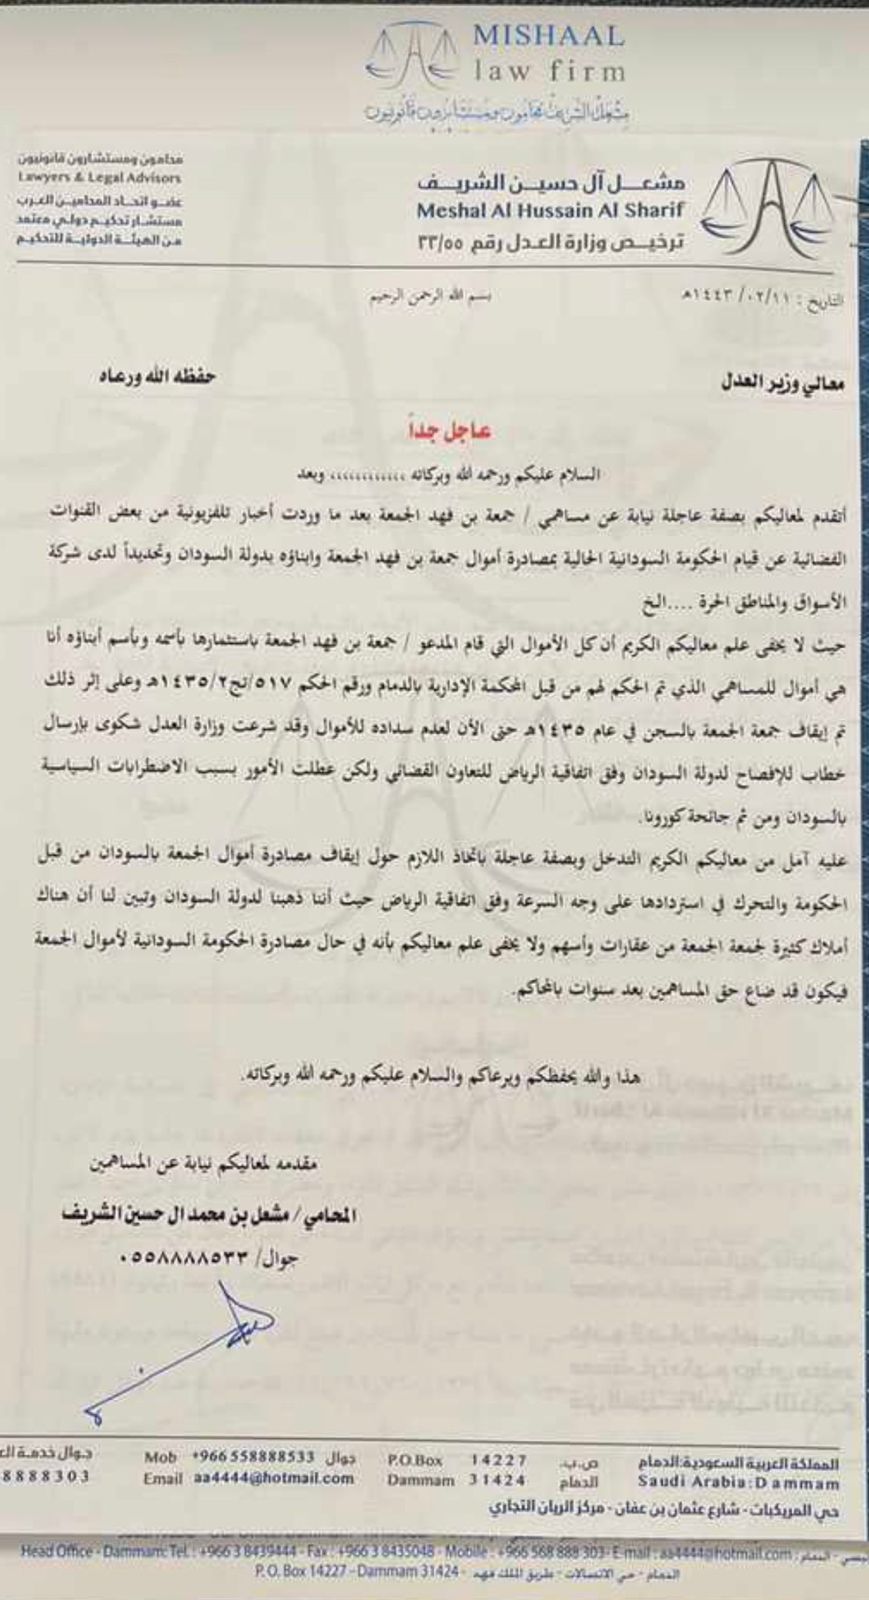 MISHAAL
law firm
مشعل الشريف محامون ومستشارون قانونيون
محامون ومستشارون قانونيون
Lawyers & Legal Advisors
عضو اتحاد المحامين العرب
مستشار تحكيم دولي معتمد
من الهيئة الدولية للتحكيم
مشعل آل حسين الشريف
Meshal Al Hussain Al Sharif
ترخيص وزارة العدل رقم ٣٣/٥٥
التاريخ : ١٤٤٣/٠٢/١١هـ
بسم الله الرحمن الرحيم
معالي وزير العدل حفظه الله ورعاه
عاجل جداً
السلام عليكم ورحمه الله وبركاته ،،،،،،،،،،،، وبعد
أتقدم لمعاليكم بصفة عاجلة نيابة عن مساهمي / جمعة بن فهد الجمعة بعد ما وردت أخبار تلفزيونية من بعض القنوات
الفضائية عن قيام الحكومة السودانية الحالية بمصادرة أموال جمعة بن فهد الجمعة وابناؤه بدولة السودان وتحديداً لدى شركة
الأسواق والمناطق الحرة ....الخ
حيث لا يخفى علم معاليكم الكريم أن كل الأموال التي قام المدعو / جمعة بن فهد الجمعة باستثمارها بأسمه وبأسم أبناؤه أنا
هي أموال للمساهمي الذي تم الحكم لهم من قبل المحكمة الإدارية بالدمام ورقم الحكم ٥١٧/تج/٢/١٤٣٥هـ وعلى إثر ذلك
تم إيقاف جمعة الجمعة بالسجن في عام ١٤٣٥هـ حتى الأن لعدم سداده للأموال وقد شرعت وزارة العدل شكوى بإرسال
خطاب للإفصاح لدولة السودان وفق اتفاقية الرياض للتعاون القضائي ولكن عطلت الأمور بسبب الاضطرابات السياسية
بالسودان ومن ثم جائحة كورونا.
عليه آمل من معاليكم الكريم التدخل وبصفة عاجلة باتخاذ اللازم حول إيقاف مصادرة أموال الجمعة بالسودان من قبل
الحكومة والتحرك في استردادها على وجه السرعة وفق اتفاقية الرياض حيث أننا ذهبنا لدولة السودان وتبين لنا أن هناك
أملاك كثيرة لجمعة الجمعة من عقارات وأسهم ولا يخفى علم معاليكم بأنه في حال مصادرة الحكومة السودانية لأموال الجمعة
فيكون قد ضاع حق المساهمين بعد سنوات بالمحاكم.
هذا والله يحفظكم ويرعاكم والسلام عليكم ورحمه الله وبركاته.
مقدمه لمعاليكم نيابة عن المساهمين
المحامي / مشعل بن محمد ال حسين الشريف
جوال/ ٠٥٥٨٨٨٨٥٣٣
المملكة العربية السعودية:الدمام ص.ب. 14227 P.O.Box جوال +966 558888533 Mob جوال خدمة
Saudi Arabia:Dammam الدمام 31424 Dammam aa4444@hotmail.com Email 8888303
حي المريكبات - شارع عثمان بن عفان - مركز الريان التجاري
Head Office - Dammam: Tel.: +966 3 8439444 - Fax : +966 3 8435048 - Mobile : +966 568 888 303- E-mail : aa4444@hotmail.com
P.O. Box 14227 - Dammam 31424 - الدمام - حي الاتصالات - طريق الملك فهد